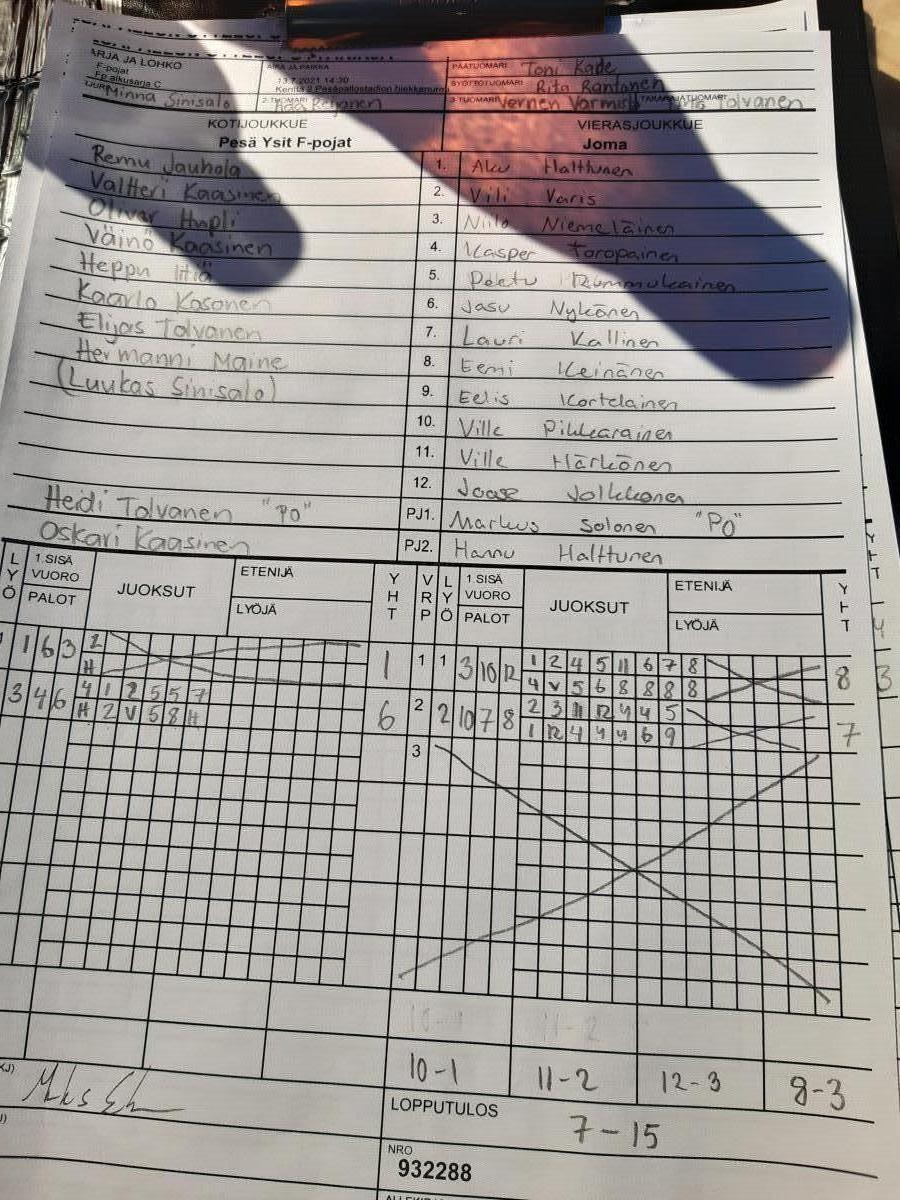 ARJA JA LOHKO AIKA JA PAIKKA PÄÄTUOMARI Toni Kade
F-pojat
Fp aikusarja C 13.7.2021 14:30 SYÖTTÖTUOMARI Rita Rantanen
Kenttä 2 Pesäpallostadion hiekkanurmi
Minna Sinisalo 2-TUOMARI 3-TUOMARI TAKARAJATUOMARI Tolvanen
KOTIJOUKKUE VIERASJOUKKUE
Pesä Ysit F-pojat Joma
Remu Jauhola 1. Aku Halttunen
Valtteri Kaasinen 2. Vili Varis
Oliver Hupli 3. Niilo Niemeläinen
Väinö Kaasinen 4. Kasper Toropainen
Heppu 5. Peetu Rummukainen
Kaarlo Kosonen 6. Jasu Nykänen
Elijas Tolvanen 7. Lauri Kallinen
Hermanni Maine 8. Eemi Keinänen
(Luukas Sinisalo) 9. Eelis Kortelainen
10. Ville Pikkarainen
11. Ville Härkönen
12. Joose Jolkkonen
Heidi Tolvanen "PO" PJ1. Markus Solonen "PO"
Oskari Kaasinen PJ2. Hannu Halttunen
LYÖ 1.SISÄ VUORO PALOT JUOKSUT ETENIJÄ LYÖJÄ YHT VRP LYÖ 1.SISÄ VUORO PALOT JUOKSUT ETENIJÄ LYÖJÄ YHT
1 6 3 2 1 1 1 3 10 12 1 2 4 5 11 6 7 8 8
H 4 V 5 6 8 8 8 8
3 4 6 4 1 2 5 5 7 6 2 2 10 7 8 2 3 11 12 4 4 5 7
H 2 V 5 8 H 1 12 4 4 4 6 9
3
10-1 11-2
10-1 11-2 12-3 8-3
LOPPUTULOS
7-15
NRO
932288